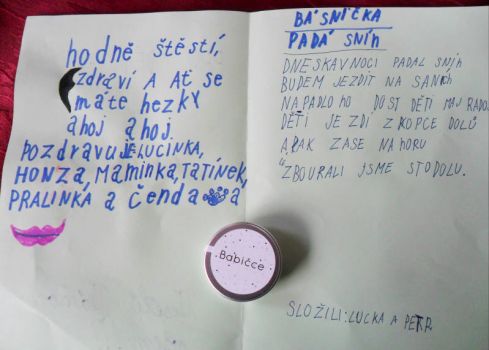 hodně štěstí,
zdraví A Ať se
máte hezky
ahoj ahoj.
Pozdravuje LUCINKA,
HONZA, Maminka, TATÍNEK,
PRALINKA a Čenda a
BÁSNIČKA
PADÁ SNÍH
DNESKAVNOCI PADAL SNÍH
BUDEM JEZDIT NA SANÍCH
NAPADLO HO DOST DĚTI MAJ RADOST
DĚTI JEZDÍ Z KOPCE DOLŮ
A PAK ZASE NAHORU
ZBOURALI JSME STODOLU.
Babičce
SLOŽILI: LUCKA A PETR